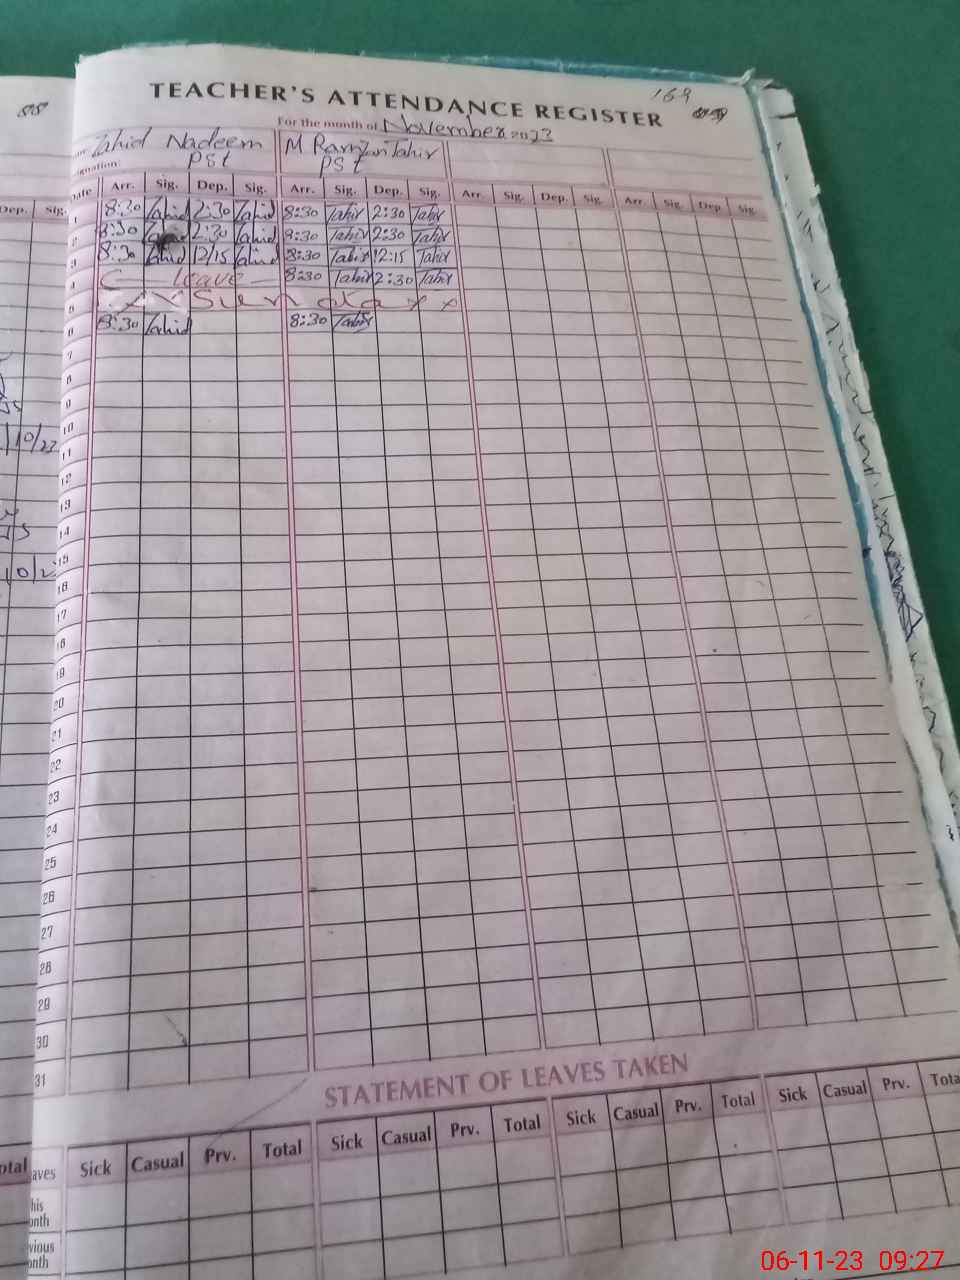 TEACHER'S ATTENDANCE REGISTER
169
For the month of November 2023
Zahid Nadeem M Ramzan Tahir
PSt PSt
Date Arr. Sig. Dep. Sig. Arr. Sig. Dep. Sig. Arr. Sig. Dep. Sig. Arr. Sig. Dep Sig.
1 8:30 Zahid 2:30 Zahid 8:30 Tahir 2:30 Tahir
2 8:30 2:30 Zahid 8:30 Tahir 2:30 Tahir
3 8:30 Zahid 12/15 Zahid 8:30 Tahir 12:15 Tahir
4 C leave 8:30 Tahir 2:30 Tahir
5
6 8:30 Zahid 8:30 Tahir
7
8
9
10
11
12
13
14
15
16
17
18
19
20
21
22
23
24
25
26
27
28
29
30
31
STATEMENT OF LEAVES TAKEN
Sick Casual Prv. Total Sick Casual Prv. Total Sick Casual Prv. Total Sick Casual Prv. Tota
aves
his
onth
vious
onth
Dep. Sig.
10/22
otal
06-11-23 09:27